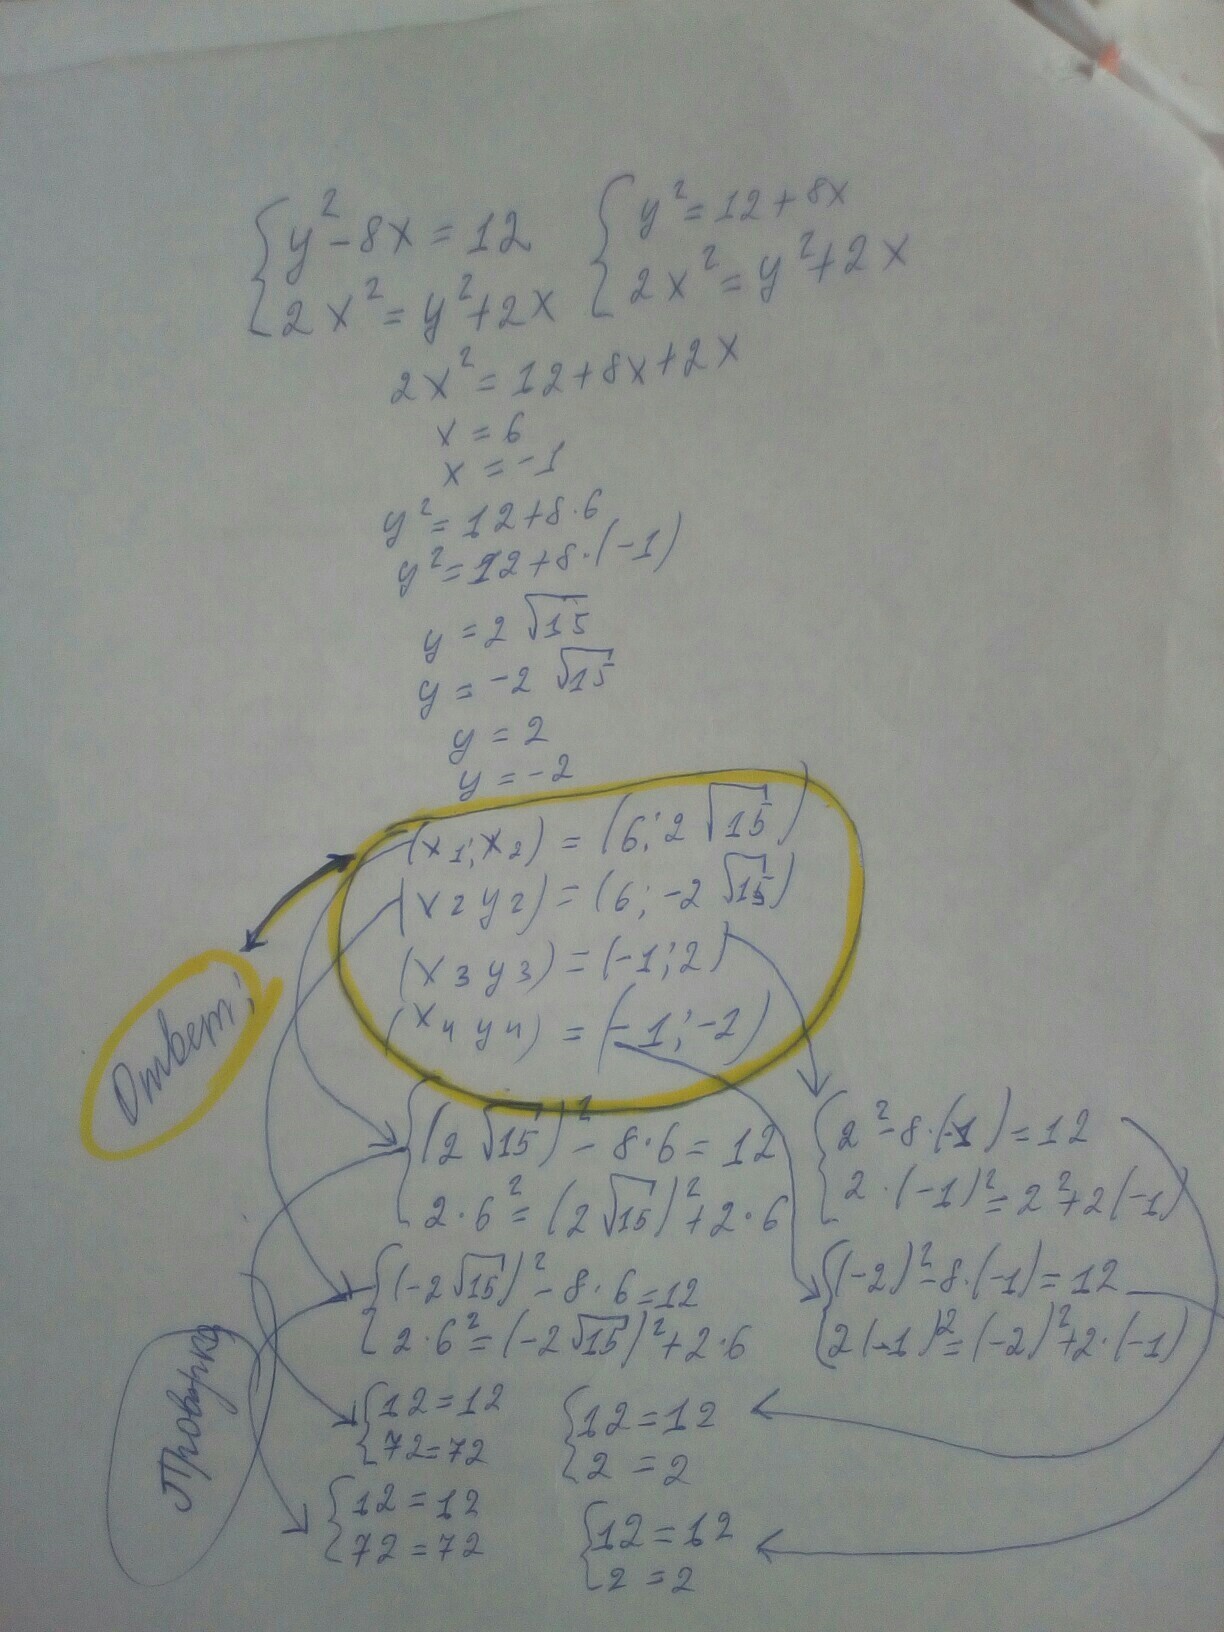 y² - 8x = 12
2x² = y² + 2x
y² = 12 + 8x
2x² = y² + 2x
2x² = 12 + 8x + 2x
x = 6
x = -1
y² = 12 + 8·6
y² = 12 + 8·(-1)
y = 2√15
y = -2√15
y = 2
y = -2
(x₁; x₂) = (6; 2√15)
(x₂ y₂) = (6; -2√15)
(x₃ y₃) = (-1; 2)
(x₄ y₄) = (-1; -2)
Ответ:
(2√15)² - 8·6 = 12
2·6² = (2√15)² + 2·6
(-2√15)² - 8·6 = 12
2·6² = (-2√15)² + 2·6
2² - 8·(-1) = 12
2·(-1)² = 2² + 2(-1)
(-2)² - 8·(-1) = 12
2(-1)² = (-2)² + 2·(-1)
Проверка
12 = 12
72 = 72
12 = 12
72 = 72
12 = 12
2 = 2
12 = 12
2 = 2